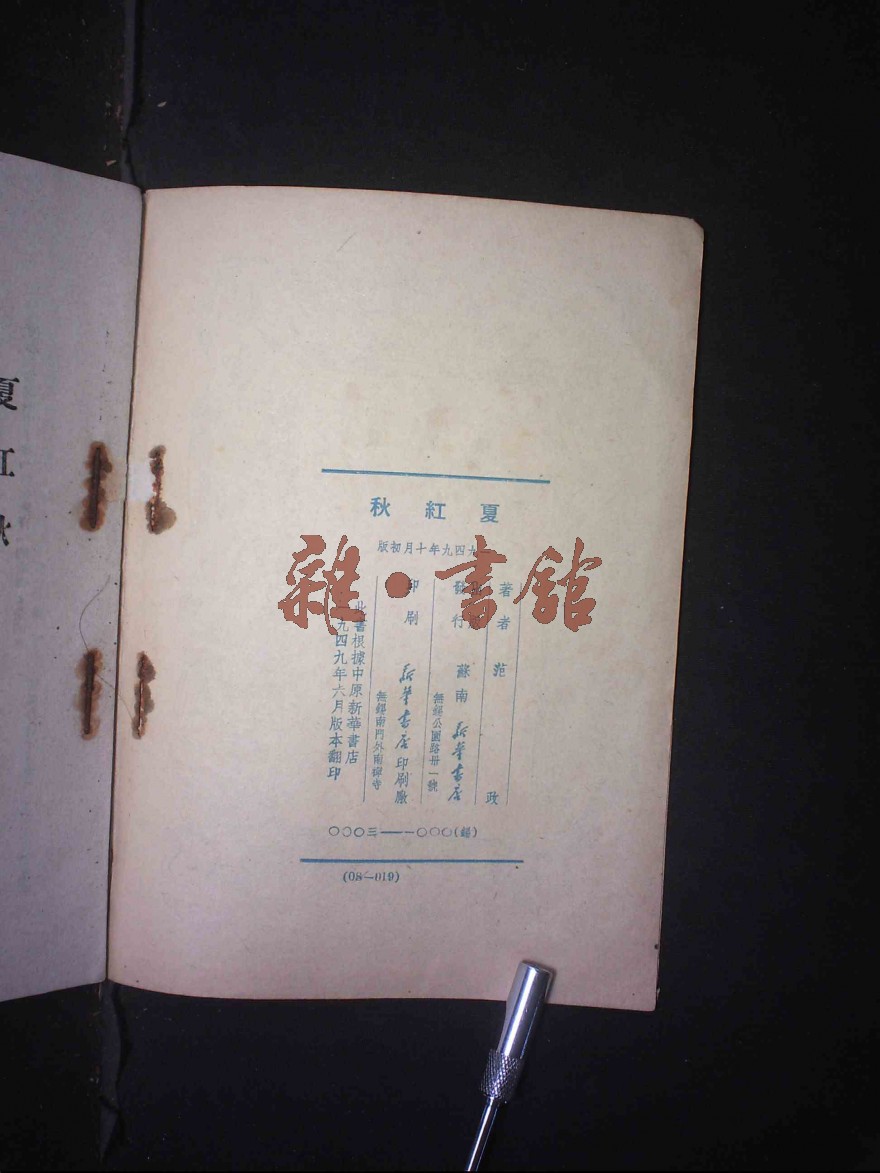 夏紅秋
一九四九年十月初版
著者 范政
發行 蘇南新華書店
無錫公園路卅一號
印刷 新華書店印刷廠
無錫南門外南禪寺
此書根據中原新華書店
一九四九年六月版本翻印
(錫)〇〇〇一——三〇〇〇
(08—019)
夏紅秋
雜·書館